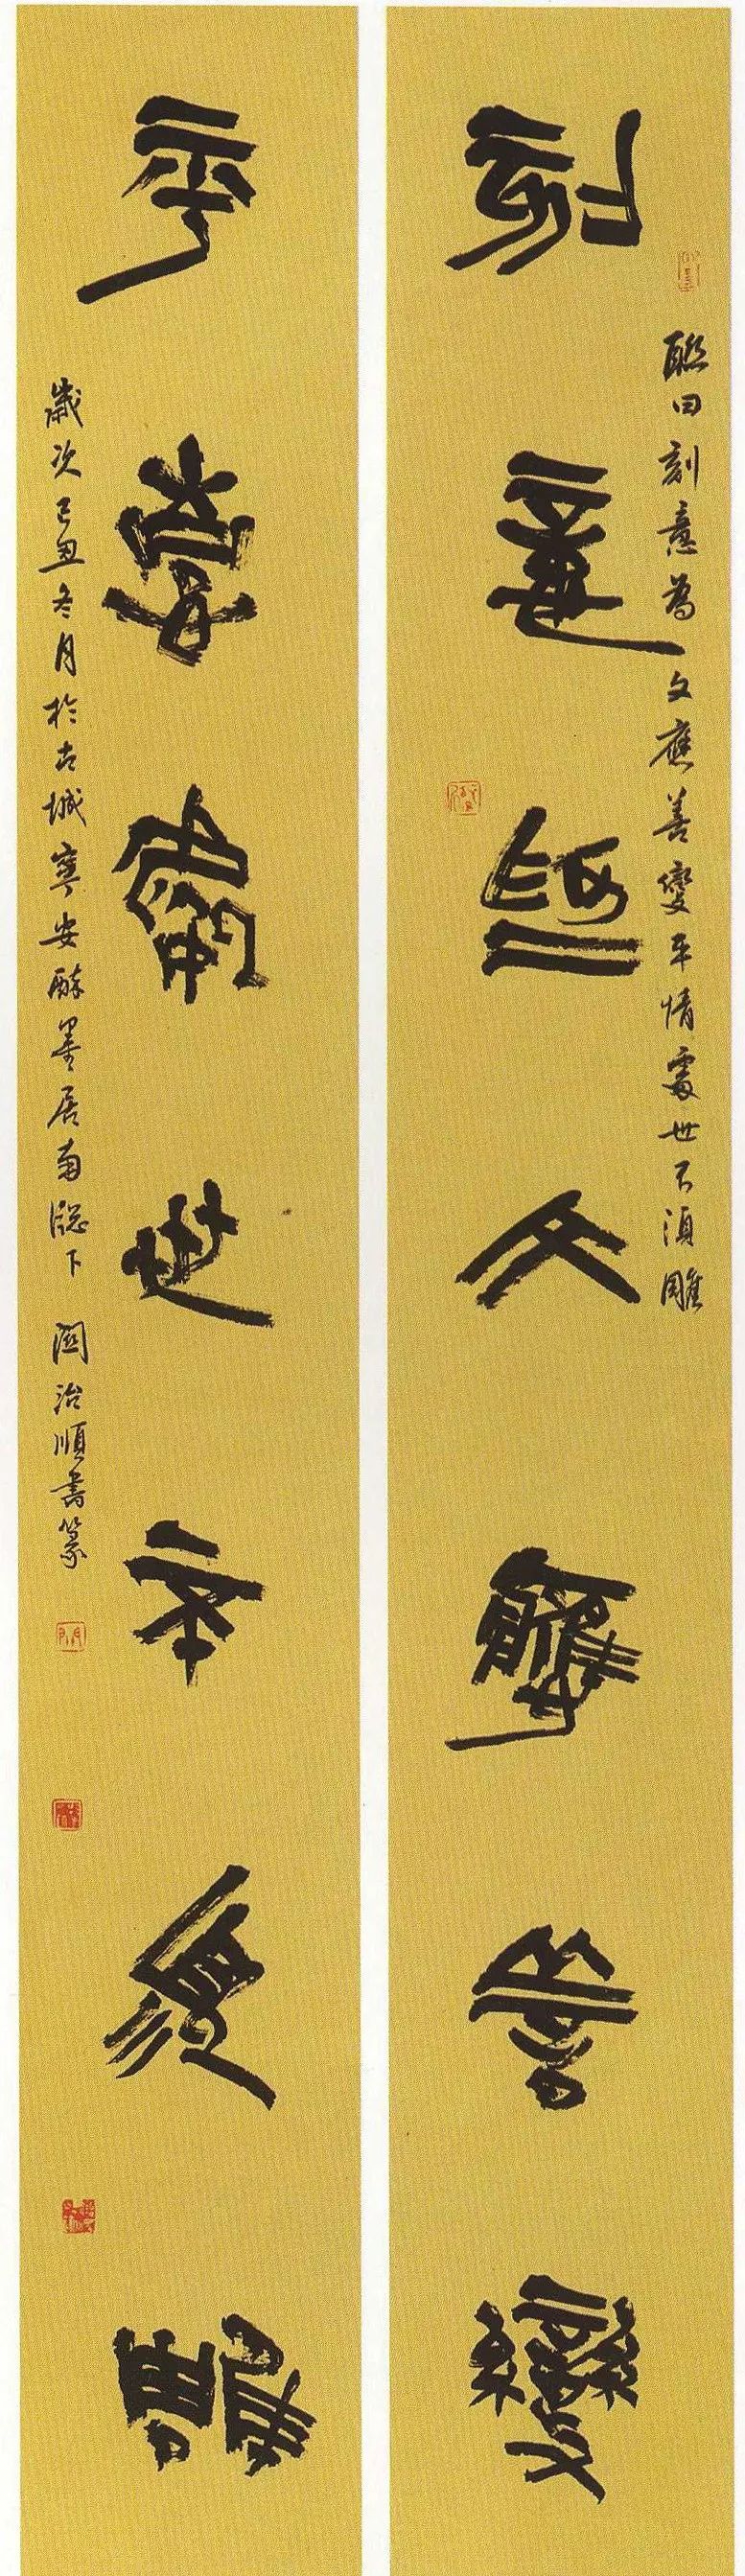 聯曰刻意為文應善變平情處世不須雕
刻意為文應善變
平情處世不須雕
歲次己丑冬月於古城寧安醉墨居南牕下 關治順書篆